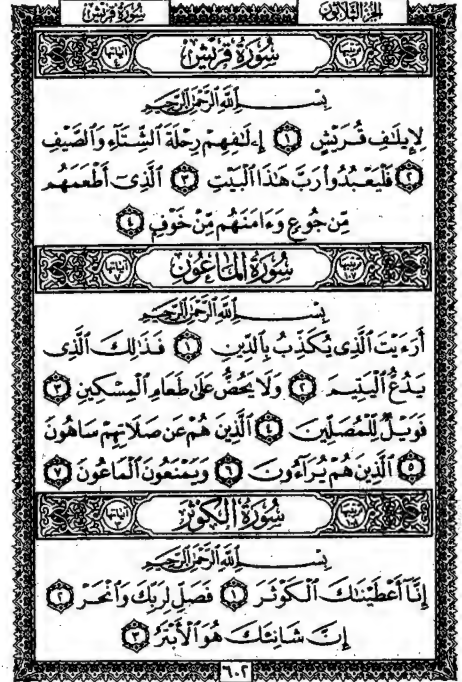 الجزء الثلاثون
سورة قريش
ترتيبها ١٠٦ سُورَةُ قُرَيْشٍ آياتها ٤
بِسْمِ ٱللَّهِ ٱلرَّحْمَٰنِ ٱلرَّحِيمِ
لِإِيلَٰفِ قُرَيْشٍ ١ إِۦلَٰفِهِمْ رِحْلَةَ ٱلشِّتَآءِ وَٱلصَّيْفِ
٢ فَلْيَعْبُدُوا۟ رَبَّ هَٰذَا ٱلْبَيْتِ ٣ ٱلَّذِىٓ أَطْعَمَهُم
مِّن جُوعٍ وَءَامَنَهُم مِّنْ خَوْفٍ ٤
ترتيبها ١٠٧ سُورَةُ المَاعُونِ آياتها ٧
بِسْمِ ٱللَّهِ ٱلرَّحْمَٰنِ ٱلرَّحِيمِ
أَرَءَيْتَ ٱلَّذِى يُكَذِّبُ بِٱلدِّينِ ١ فَذَٰلِكَ ٱلَّذِى
يَدُعُّ ٱلْيَتِيمَ ٢ وَلَا يَحُضُّ عَلَىٰ طَعَامِ ٱلْمِسْكِينِ ٣
فَوَيْلٌ لِّلْمُصَلِّينَ ٤ ٱلَّذِينَ هُمْ عَن صَلَاتِهِمْ سَاهُونَ
٥ ٱلَّذِينَ هُمْ يُرَآءُونَ ٦ وَيَمْنَعُونَ ٱلْمَاعُونَ ٧
ترتيبها ١٠٨ سُورَةُ الكَوْثَرِ آياتها ٣
بِسْمِ ٱللَّهِ ٱلرَّحْمَٰنِ ٱلرَّحِيمِ
إِنَّآ أَعْطَيْنَٰكَ ٱلْكَوْثَرَ ١ فَصَلِّ لِرَبِّكَ وَٱنْحَرْ ٢
إِنَّ شَانِئَكَ هُوَ ٱلْأَبْتَرُ ٣
٦٠٢